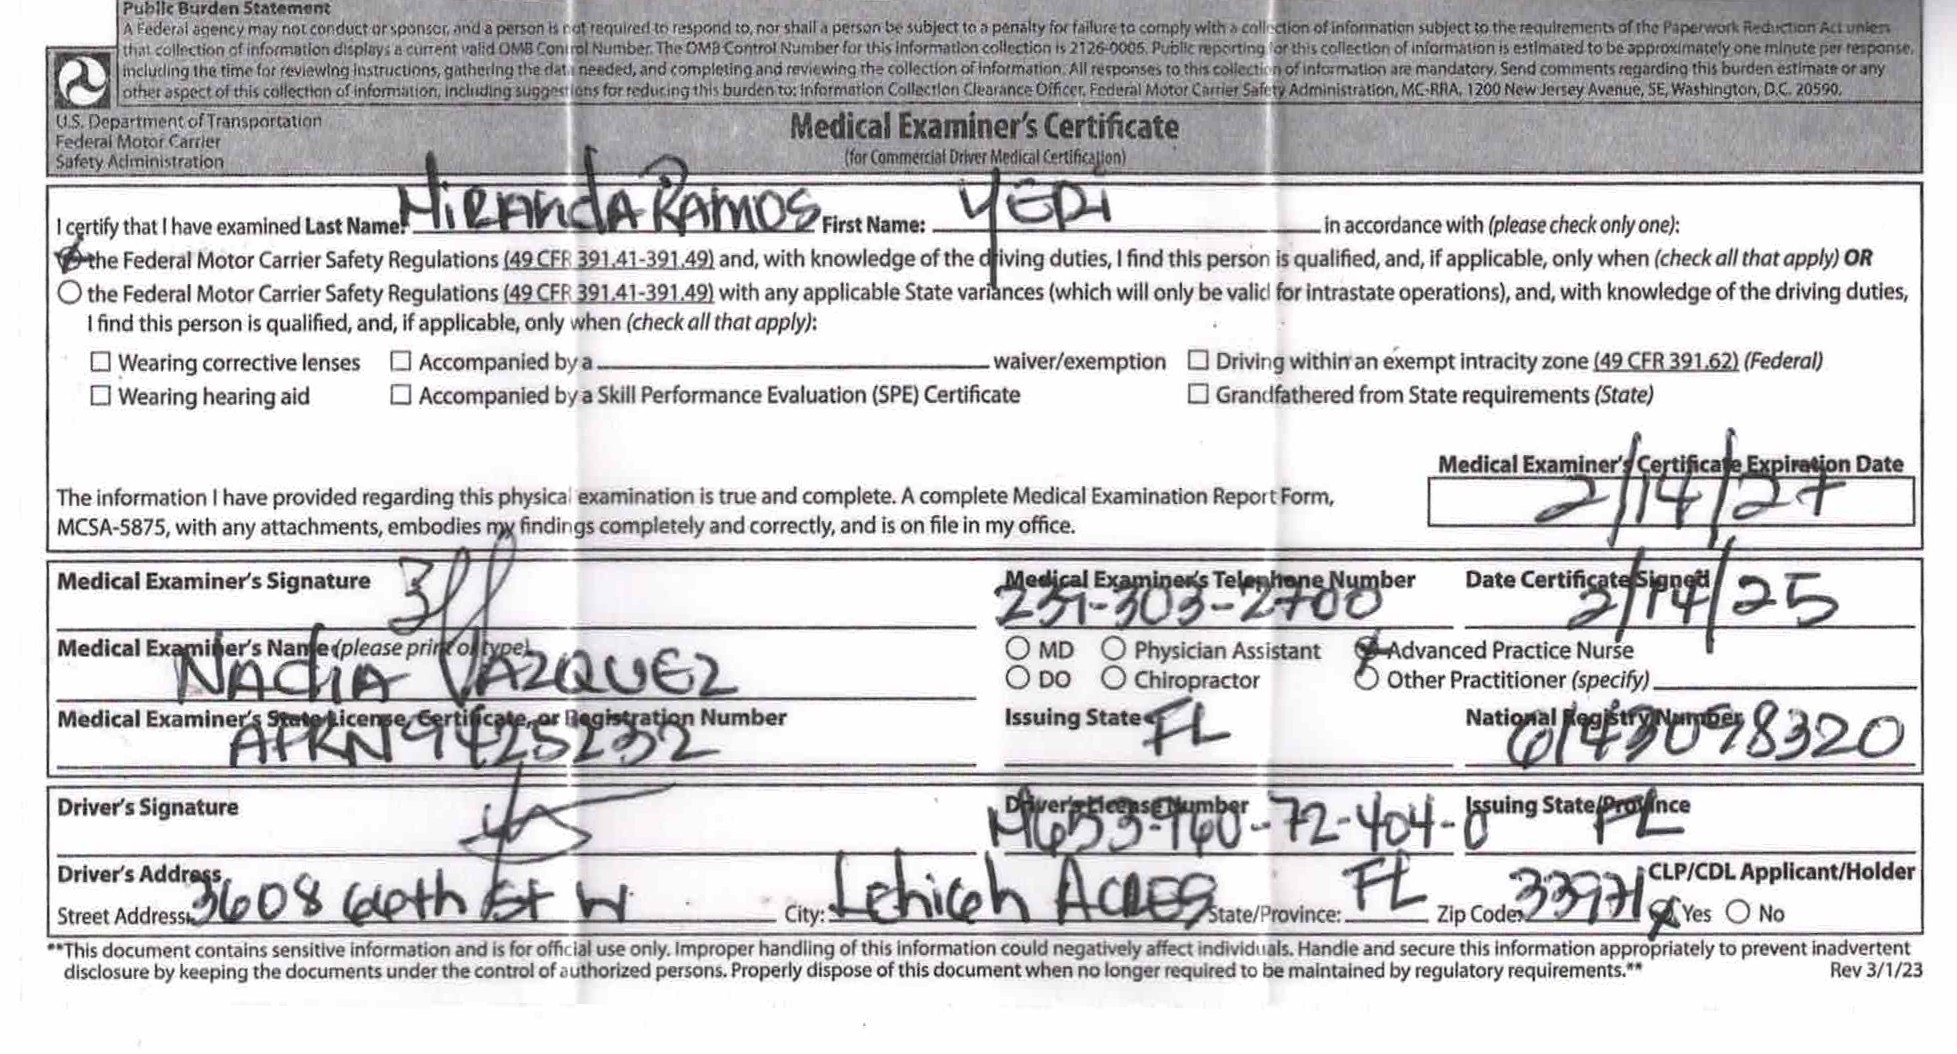 Public Burden Statement
A Federal agency may not conduct or sponsor, and a person is not required to respond to, nor shall a person be subject to a penalty for failure to comply with a collection of information subject to the requirements of the Paperwork Reduction Act unless
that collection of information displays a current valid OMB Control Number. The OMB Control Number for this information collection is 2126-0006. Public reporting for this collection of information is estimated to be approximately one minute per response,
including the time for reviewing instructions, gathering the data needed, and completing and reviewing the collection of information. All responses to this collection of information are mandatory. Send comments regarding this burden estimate or any
other aspect of this collection of information, including suggestions for reducing this burden to: Information Collection Clearance Officer, Federal Motor Carrier Safety Administration, MC-RRA, 1200 New Jersey Avenue, SE, Washington, D.C. 20590.
U.S. Department of Transportation
Federal Motor Carrier
Safety Administration
Medical Examiner's Certificate
(for Commercial Driver Medical Certification)
I certify that I have examined Last Name: Miranda Ramos First Name: YEDI in accordance with (please check only one):
the Federal Motor Carrier Safety Regulations (49 CFR 391.41-391.49) and, with knowledge of the driving duties, I find this person is qualified, and, if applicable, only when (check all that apply) OR
the Federal Motor Carrier Safety Regulations (49 CFR 391.41-391.49) with any applicable State variances (which will only be valid for intrastate operations), and, with knowledge of the driving duties,
I find this person is qualified, and, if applicable, only when (check all that apply):
Wearing corrective lenses Accompanied by a waiver/exemption Driving within an exempt intracity zone (49 CFR 391.62) (Federal)
Wearing hearing aid Accompanied by a Skill Performance Evaluation (SPE) Certificate Grandfathered from State requirements (State)
Medical Examiner's Certificate Expiration Date
2/14/27
The information I have provided regarding this physical examination is true and complete. A complete Medical Examination Report Form,
MCSA-5875, with any attachments, embodies my findings completely and correctly, and is on file in my office.
Medical Examiner's Signature Medical Examiner's Telephone Number Date Certificate Signed
239-303-2700 2/14/25
Medical Examiner's Name (please print or type) MD Physician Assistant Advanced Practice Nurse
NAdIA VAZQUEZ DO Chiropractor Other Practitioner (specify)
Medical Examiner's State License, Certificate, or Registration Number Issuing State National Registry Number
APRN 9425232 FL 6143098320
Driver's Signature Driver's License Number Issuing State/Province
M653-960-72-404-0 FL
Driver's Address CLP/CDL Applicant/Holder
Street Address: 3608 66th St W City: Lehigh Acres State/Province: FL Zip Code: 33971 Yes No
**This document contains sensitive information and is for official use only. Improper handling of this information could negatively affect individuals. Handle and secure this information appropriately to prevent inadvertent
disclosure by keeping the documents under the control of authorized persons. Properly dispose of this document when no longer required to be maintained by regulatory requirements.** Rev 3/1/23